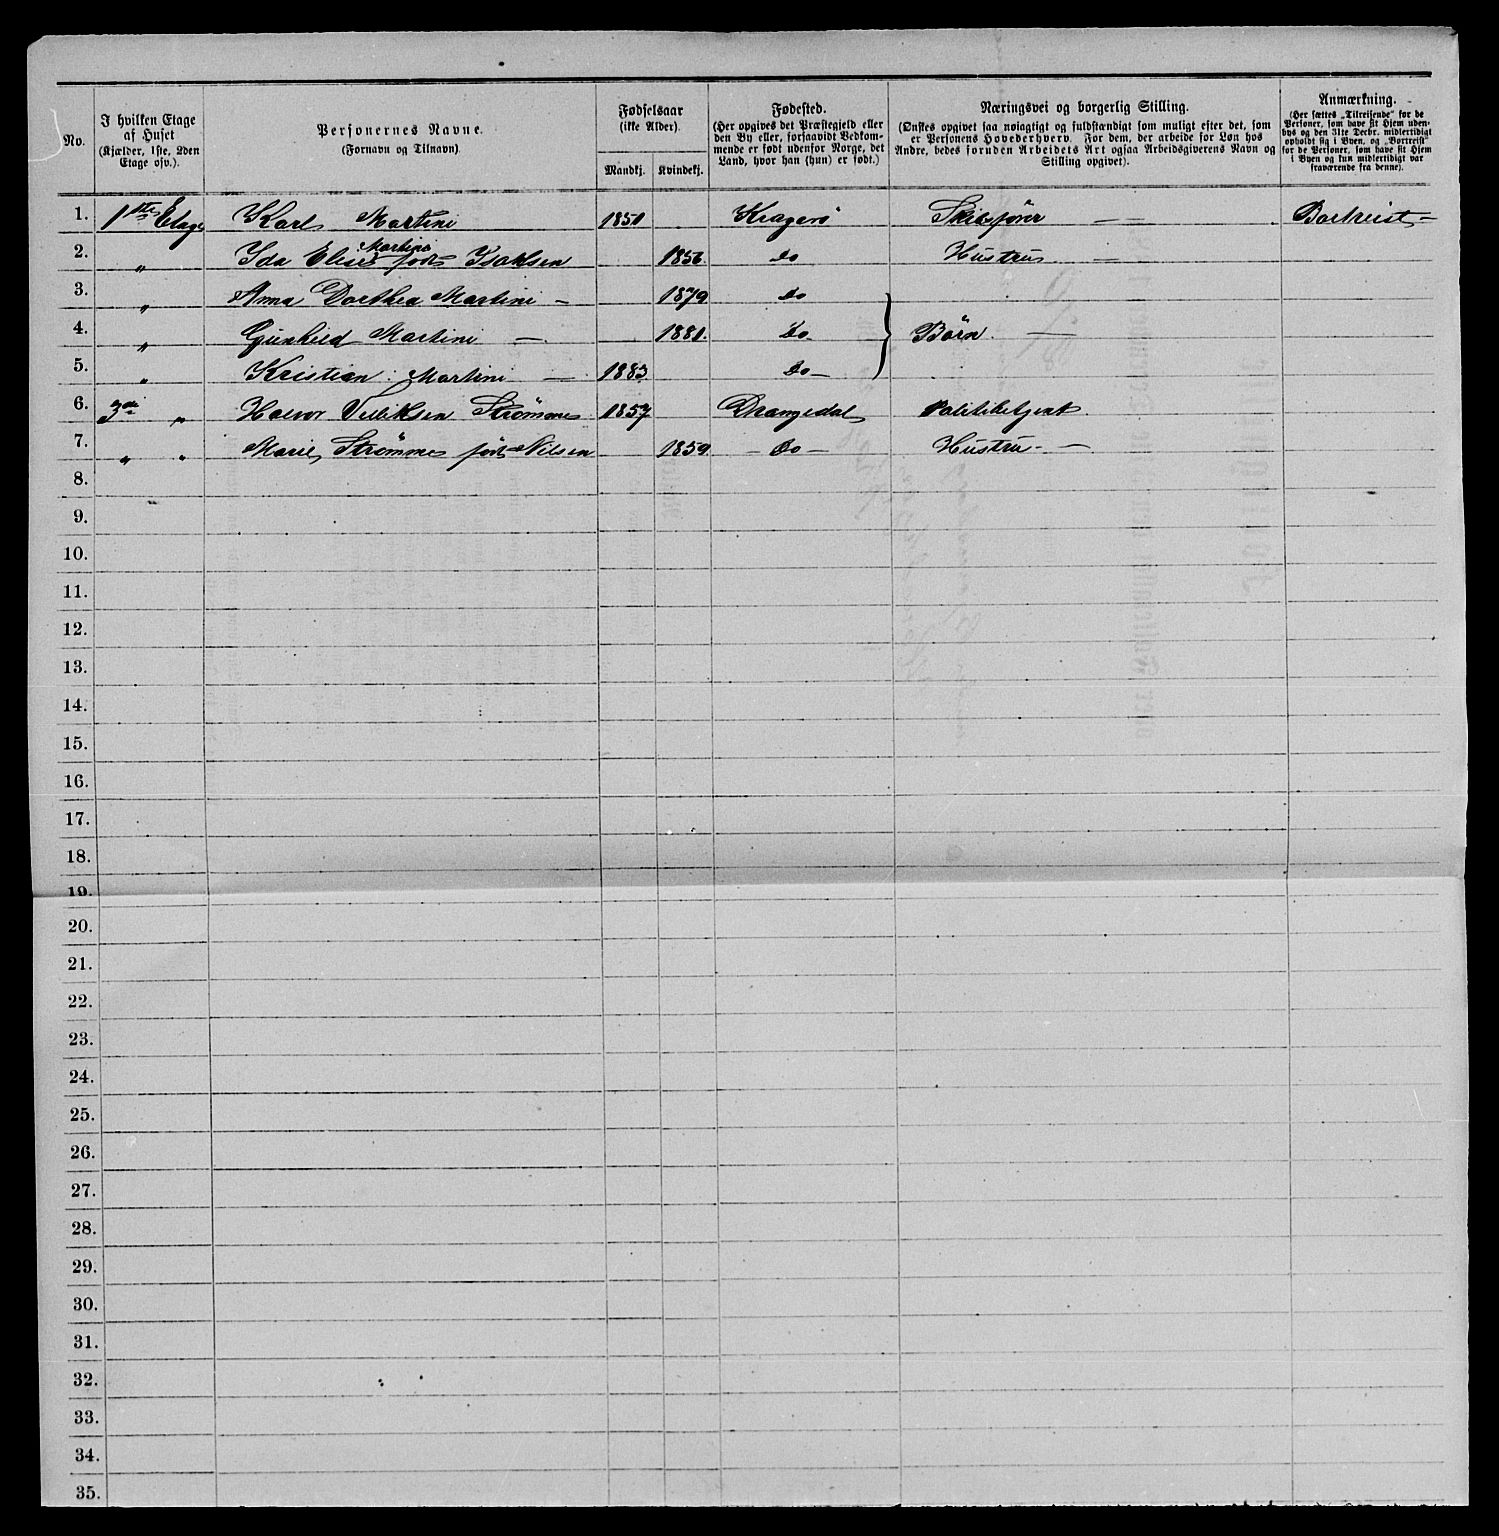 No.
I hvilken Etage af Huset (Kjælder, 1ste, 2den Etage osv.).
Personernes Navne. (Fornavn og Tilnavn).
Fødselsaar (ikke Alder). Mandkj. Kvindekj.
Fødested. (Her opgives det Præstegjeld eller den By eller, forsaavidt Vedkommende er født udenfor Norge, det Land, hvor han (hun) er født.)
Næringsvei og borgerlig Stilling. (Ønskes opgivet saa nøiagtigt og fuldstændigt som muligt efter det, som er Personens Hovederhverv. For dem, der arbeide for Løn hos Andre, bedes foruden Arbeidets Art ogsaa Arbeidsgiverens Navn og Stilling opgivet).
Anmærkning. (Her sættes „Tilreisende“ for de Personer, som have sit Hjem udenbys og den 31te Decbr. midlertidigt opholdt sig i Byen, og „Bortreist“ for de Personer, som have sit Hjem i Byen og kun midlertidigt var fraværende fra denne).
1. 1ste Etage Karl Martini 1851 Kragerø Skibsfører Bortreist
2. „ Ida Elise Martini født Isaksen 1856. do Hustru
3. „ Anna Dorthea Martini 1879 do
4. „ Gunhild Martini 1881. do Børn.
5. „ Kristian Martini 1883 do
6. 3de „ Halvor Strømme 1857 Drangedal Politibetjent
7. „ „ Marie Strømme født Nilsen 1859. do Hustru
8.
9.
10.
11.
12.
13.
14.
15.
16.
17.
18.
19.
20.
21.
22.
23.
24.
25.
26.
27.
28.
29.
30.
31.
32.
33.
34.
35.